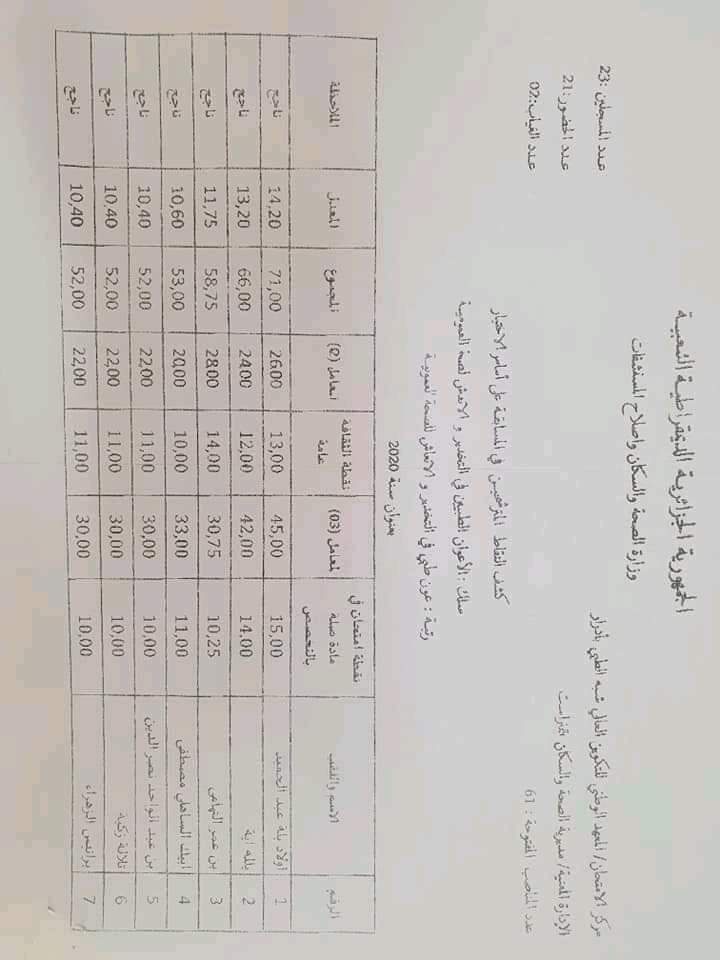 الجمهورية الجزائرية الديمقراطية الشعبية
وزارة الصحة والسكان واصلاح المستشفيات
مركز الامتحان/ المعهد الوطني للتكوين العالي شبه الطبي بأدرار
عدد المسجلين :23
الإدارة المعنية/ مديرية الصحة والسكان تمنراست
عدد الحضور :21
عدد المناصب المفتوحة : 61
عدد الغياب:02
كشف النقاط المترشحين في المسابقة على أساس الاختبار
سلك : الأعوان الطبيين في التخدير و الانعاش لصحة العمومية
رتبة : عون طبي في التخدير و الانعاش للصحة لعمومية
بعنوان سنة 2020
الرقم الاسم واللقب نقطة امتحان في مادة صلة بالتخصص لمعامل (03) نقطة الثقافة عامة لمعامل (2) المجموع المعدل الملاحظة
1 اولاد بلة عبد الحميد 15,00 45,00 13,00 26,00 71,00 14,20 ناجح
2 بلله اية 14,00 42,00 12,00 24,00 66,00 13,20 ناجح
3 بن عمر التهامي 10,25 30,75 14,00 28,00 58,75 11,75 ناجح
4 ابيك الساهلي مصطفى 11,00 33,00 10,00 20,00 53,00 10,60 ناجح
5 بن عبد الواحد نصر الدين 10,00 30,00 11,00 22,00 52,00 10,40 ناجح
6 تلالة زكية 10,00 30,00 11,00 22,00 52,00 10,40 ناجح
7 الزهراء 10,00 30,00 11,00 22,00 52,00 10,40 ناجح